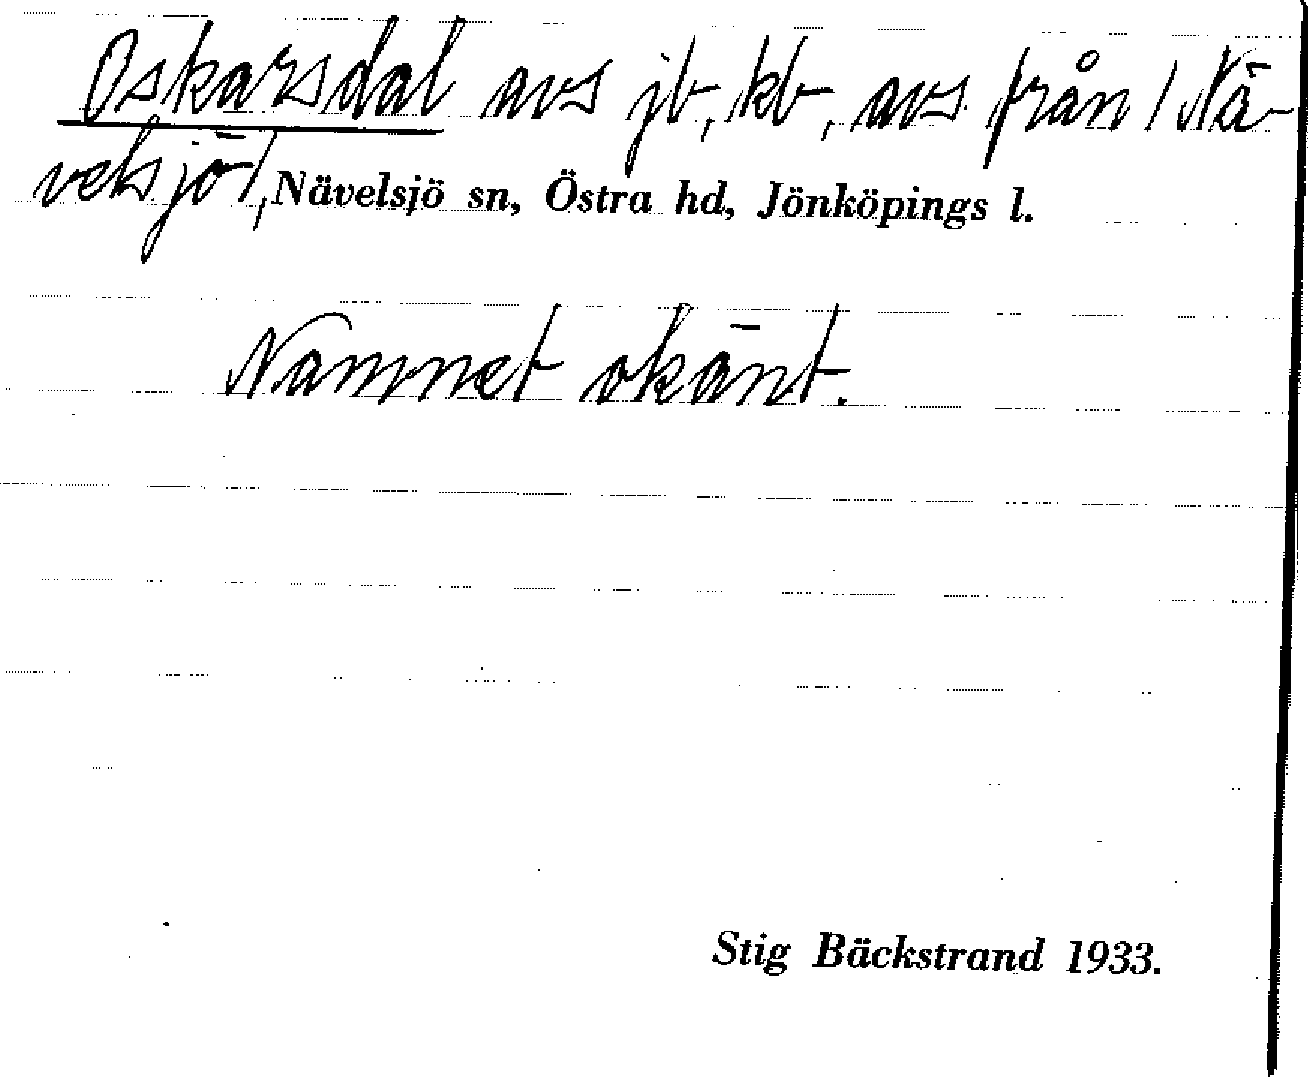 Oskarsdal avs jb, kb, avs från 1 Nä-
velsjö 1, Nävelsjö sn, Östra hd, Jönköpings l.
Namnet okänt.
Stig Bäckstrand 1933.